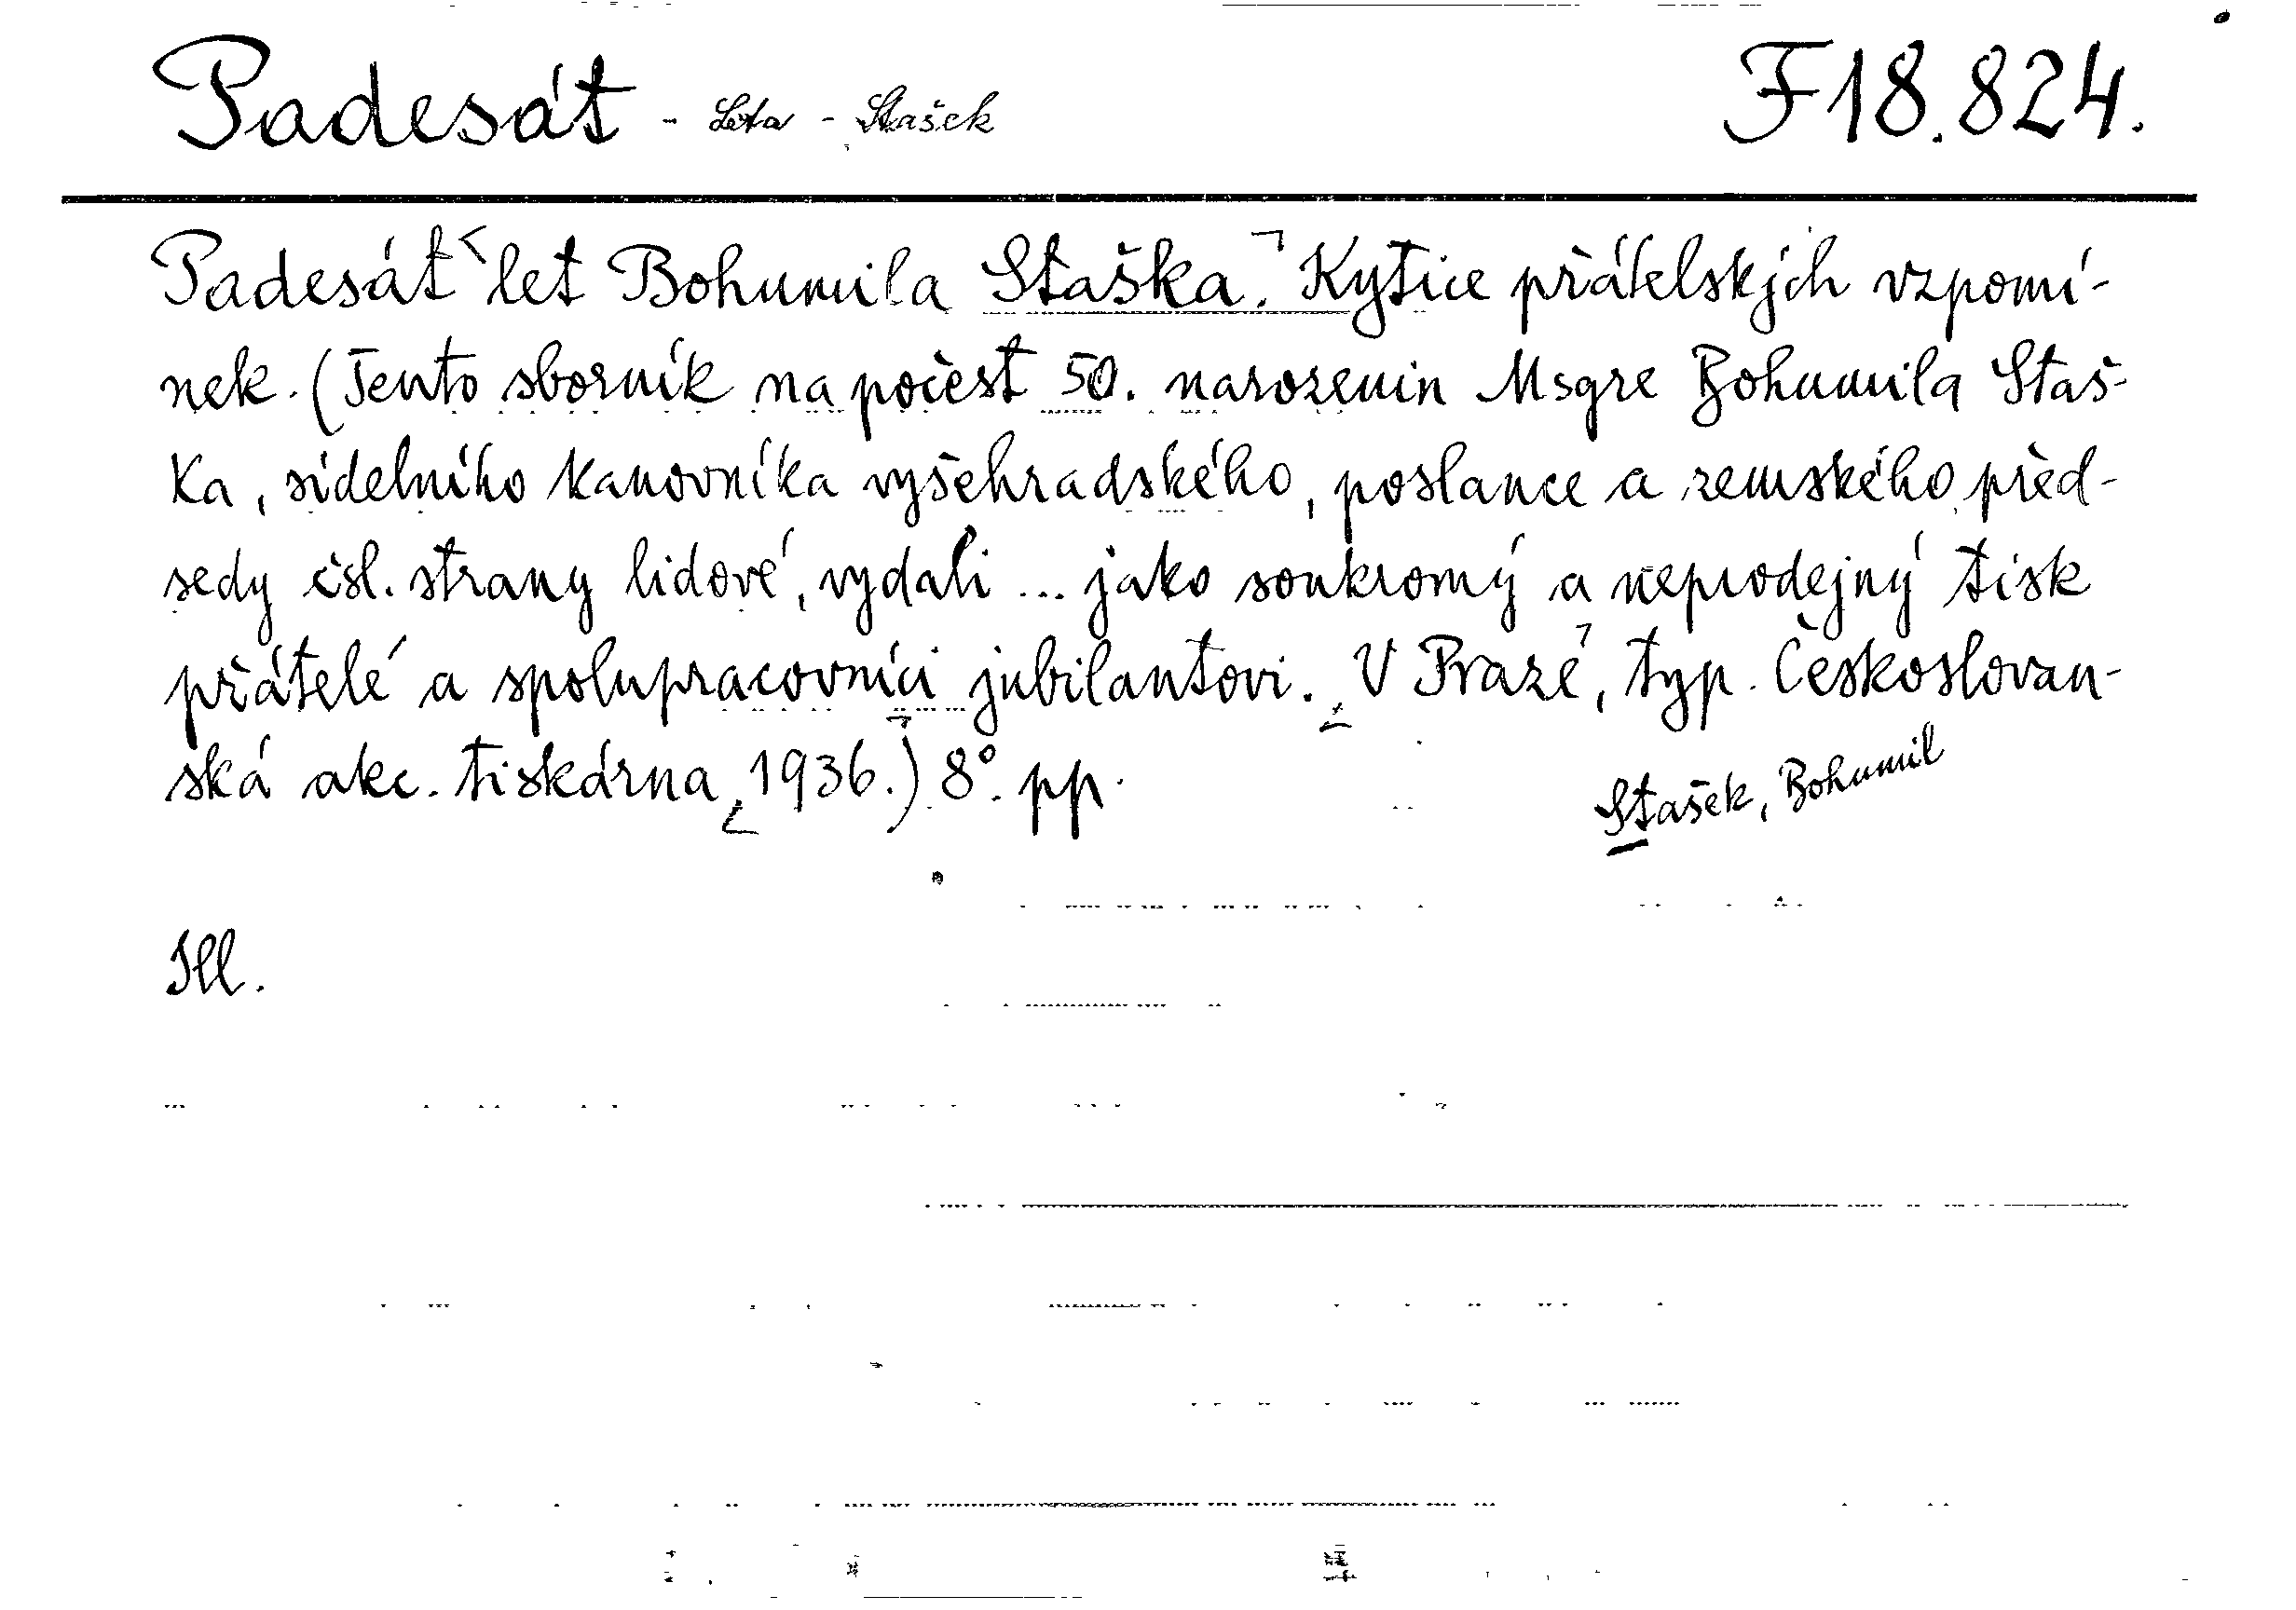 Padesát - Léta - Stašek F 18.824.
Padesát let Bohumila Staška. Kytice přátelských vzpomí-
nek. (Tento sborník na počest 50. narozenin Msgre Bohumila Staš-
ka, sídelního kanovníka vyšehradského, poslance a zemského před-
sedy čsl. strany lidové, vydali ... jako soukromý a neprodejný tisk
přátelé a spolupracovníci jubilantovi. V Praze, typ. Českoslovan-
ská akc. tiskárna 1936.) 8°. pp.
Stašek, Bohumil
Ill.